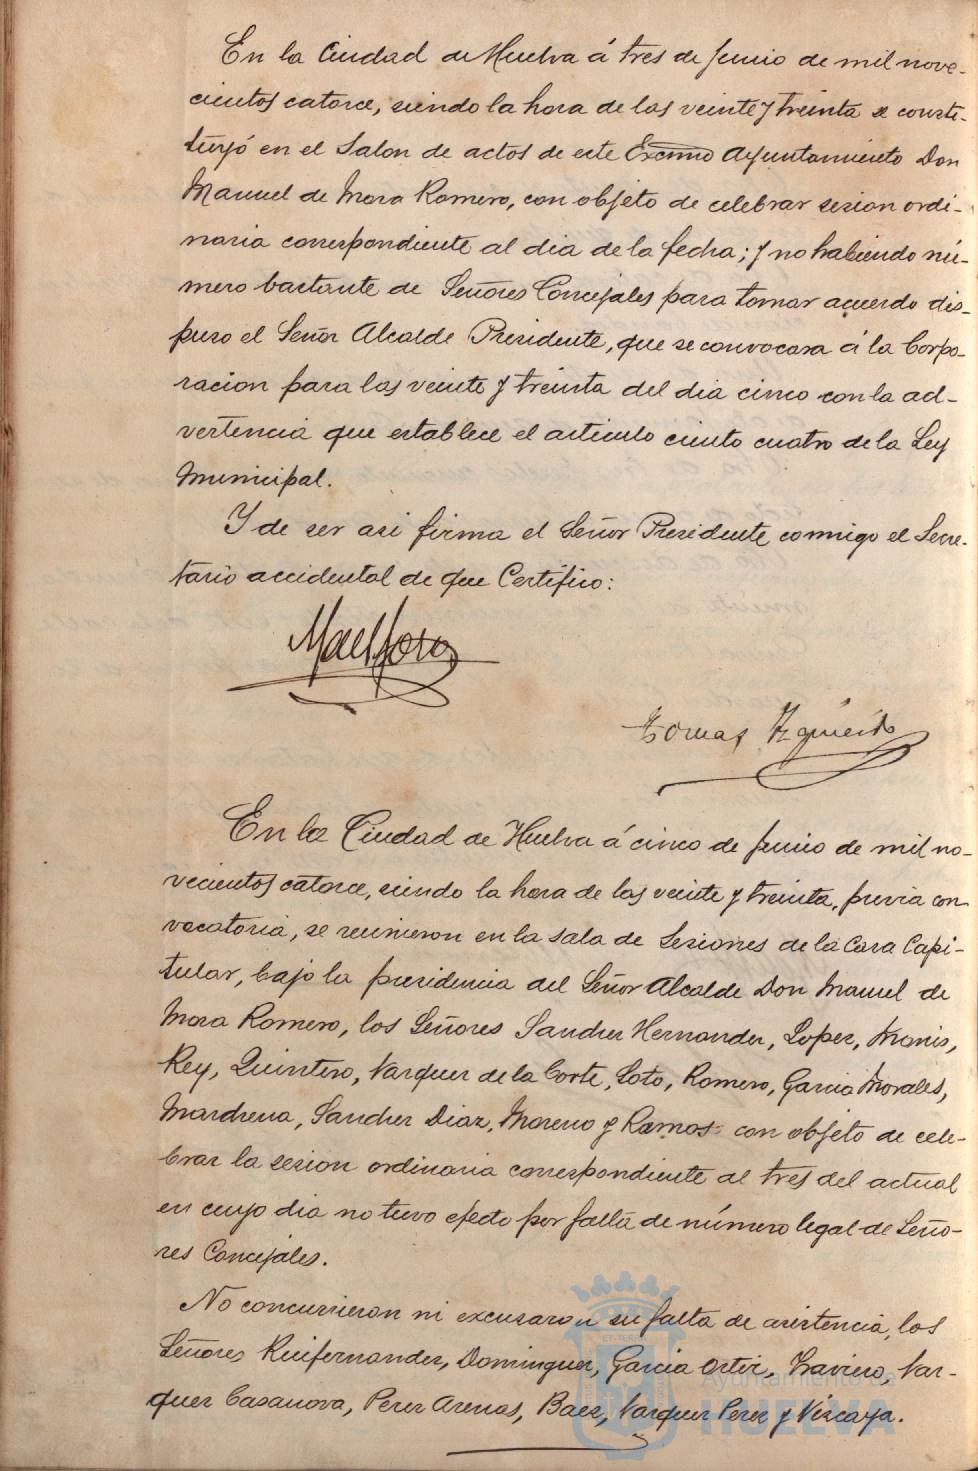 En la Ciudad de Huelva á tres de Junio de mil nove-
cientos catorce, siendo la hora de las veinte y treinta se consti-
tuyó en el Salon de actos de este Excmo Ayuntamiento Don
Manuel de Mora Romero, con objeto de celebrar sesion ordi-
naria correspondiente al dia de la fecha; y no habiendo nú-
mero bastante de Señores Concejales para tomar acuerdo dis-
puso el Señor Alcalde Presidente, que se convocara á la Corpo-
racion para las veinte y treinta del dia cinco con la ad-
vertencia que establece el articulo ciento cuatro de la Ley
Municipal.
Y de ser asi firma el Señor Presidente conmigo el Secre-
tario accidental de que Certifico:
Mael Mora
Tomas Izquierdo
En la Ciudad de Huelva á cinco de Junio de mil no-
vecientos catorce, siendo la hora de las veinte y treinta, previa con-
vocatoria, se reunieron en la sala de Sesiones de la Casa Capi-
tular, bajo la presidencia del Señor Alcalde Don Manuel de
Mora Romero, los Señores Sanchez Hernandez, Lopez,
Rey, Quintero, Vazquez de la Corte, Soto, Romero, Garcia Morales,
Marchena, Sanchez Diaz, Moreno y Ramos con objeto de cele-
brar la sesion ordinaria correspondiente al tres del actual
en cuyo dia no tuvo efecto por falta de número legal de Seño-
res Concejales.
No concurrieron ni excusaron su falta de asistencia, los
Señores Ruifernandez, Dominguez, Garcia Ortiz, Vaz-
quez Casanova, Perez Arenas, Baez, Vazquez Perez y Vizcaya.
Ayuntamiento de
HUELVA